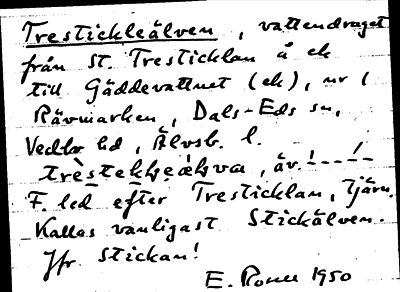 Trestickleälven, vattendraget
från St. Tresticklan å ek
till Gäddevattnet (ek), nr 1
Rävmarken, Dals-Eds sn,
Vedbo hd, Älvsb. l.
äv.
F. led efter Tresticklan, Tjärn.
Kallas vanligast Stickälven.
Jfr Stickan!
E. 1950